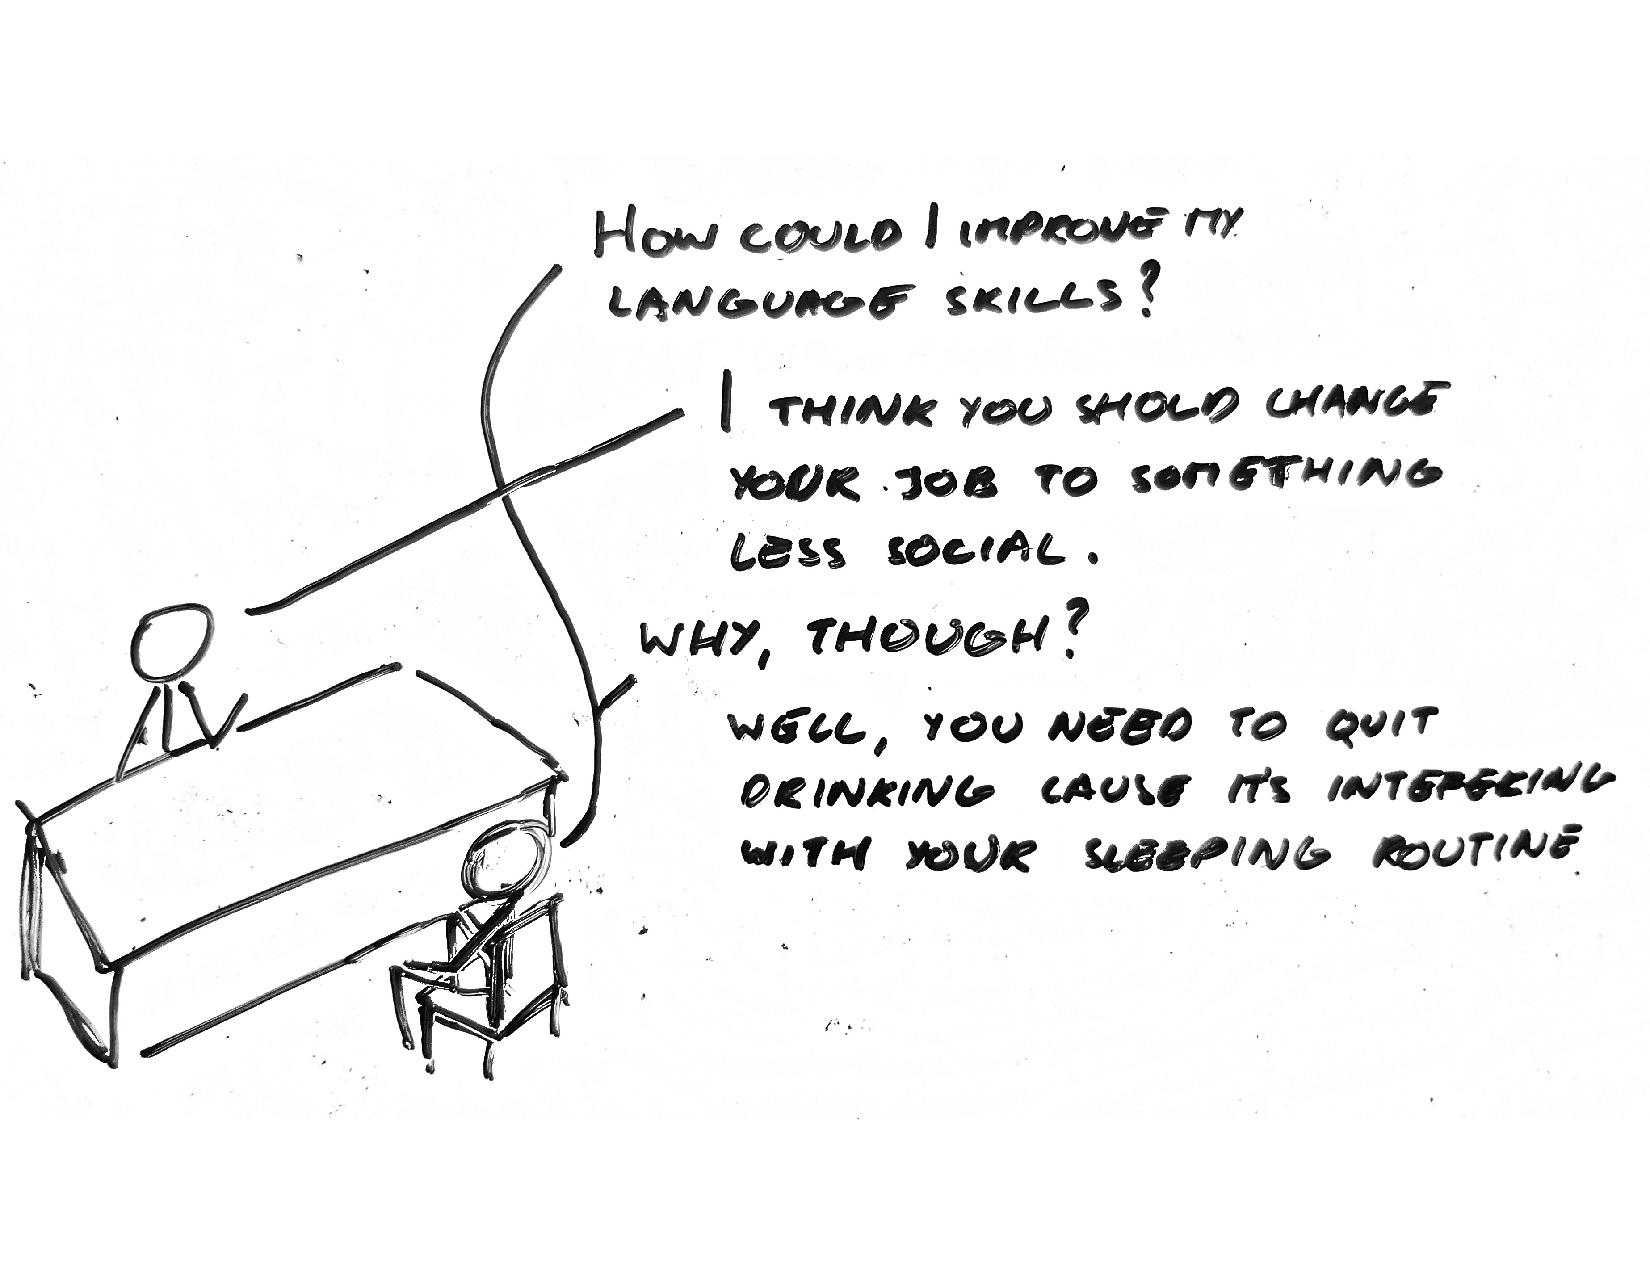 HOW COULD I IMPROVE MY
LANGUAGE SKILLS?
I THINK YOU SHOLD CHANGE
YOUR JOB TO SOMETHING
LESS SOCIAL.
WHY, THOUGH?
WELL, YOU NEED TO QUIT
DRINKING CAUSE IT'S INTEFEKING
WITH YOUR SLEEPING ROUTINE